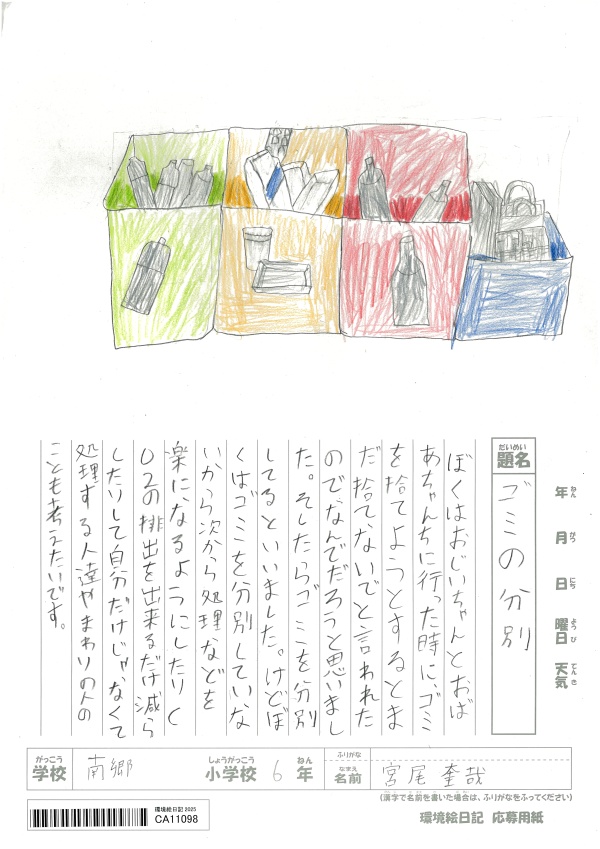 年 月 日 曜日 天気
ねん がつ にち ようび てんき
だいめい
題名
ゴミの分別
ぼくはおじいちゃんとおば
あちゃんちに行った時に、ゴミ
を捨てようとするとま
だ捨てないでと言われた
のでなんでだろうと思いまし
た。そしたらゴミを分別
してるといいました。けどぼ
くはゴミを分別していな
いから次から処理などを
楽になるようにしたりC
O2の排出を出来るだけ減ら
したりして自分だけじゃなくて
処理する人達やまわりの人の
ことも考えたいです。
がっこう
学校
南郷
しょうがっこう
小学校
6
ねん
年
ふりがな
なまえ
名前
宮尾 奎哉
(漢字で名前を書いた場合は、ふりがなをふってください)
環境絵日記 2025
CA11098
環境絵日記 応募用紙